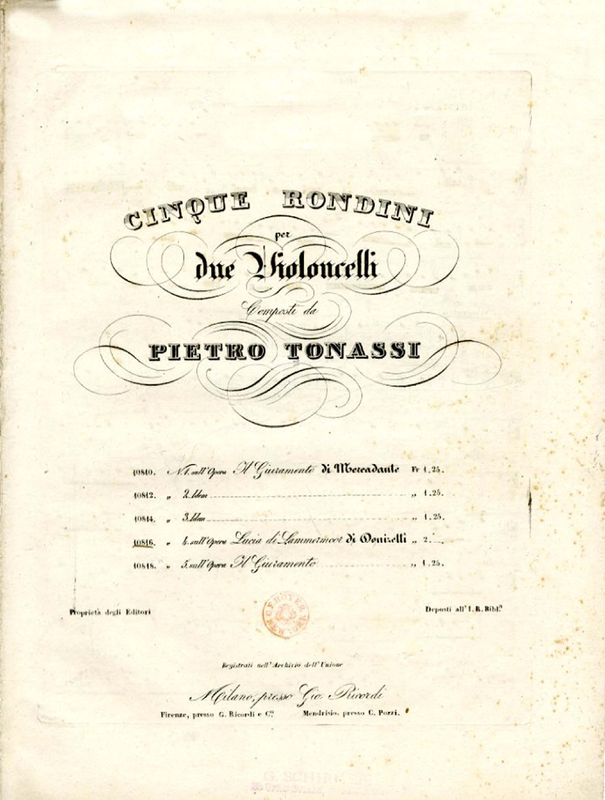 CINQUE RONDINI
per
due Violoncelli
Composti da
PIETRO TONASSI
10840. N.1. sull'Opera Il Giuramento di Mercadante Fr 1.25.
10842. „ 2. Idem „ 1.25.
10844. „ 3. Idem „ 1.25.
10846. „ 4. sull'Opera Lucia di Lammermoor di Donizetti „ 2._
10848. „ 5. sull'Opera Il Giuramento „ 1.25.
Proprietà degli Editori
Deposti all'I. R. Bibl.ª
Registrati nell'Archivio dell'Unione
Milano, presso Gio. Ricordi
Firenze, presso G. Ricordi e C.º Mendrisio, presso C. Pozzi.